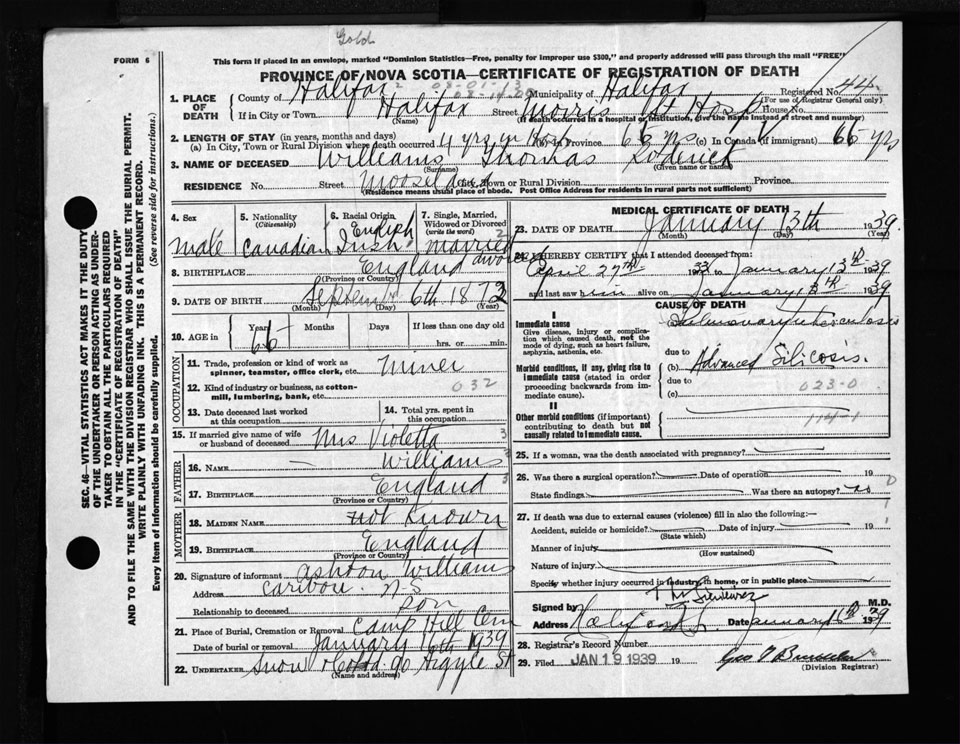 Gold
FORM 6
This form if placed in an envelope, marked "Dominion Statistics—Free, penalty for improper use $300," and properly addressed will pass through the mail "FREE"
PROVINCE OF NOVA SCOTIA—CERTIFICATE OF REGISTRATION OF DEATH
1. PLACE OF DEATH
County of Halifax Municipality of Halifax Registered No. 44
(For use of Registrar General only)
If in City or Town Halifax Street Morris St Hosp House No.
(Name) (If death occurred in a hospital or institution, give the name instead of street and number)
2. LENGTH OF STAY (in years, months and days)
(a) In City, Town or Rural Division where death occurred 4 yrs in Hosp (b) In Province 66 yrs (c) In Canada (if immigrant) 66 yrs
3. NAME OF DECEASED Williams Thomas Roderick
(Surname) (Given name or names)
RESIDENCE No. Street Mooseland City, Town or Rural Division Province
(Residence means usual place of abode. Post Office Address for residents in rural parts not sufficient)
4. Sex male
5. Nationality (Citizenship) Canadian
6. Racial Origin English Irish
7. Single, Married, Widowed or Divorced (write the word) married
8. BIRTHPLACE England
(Province or Country)
9. DATE OF BIRTH September 6th 1872
(Month) (Day) (Year)
10. AGE in Years 66 Months Days If less than one day old
hrs. or min.
OCCUPATION
11. Trade, profession or kind of work as spinner, teamster, office clerk, etc. Miner
12. Kind of industry or business, as cotton-mill, lumbering, bank, etc. 032
13. Date deceased last worked at this occupation
14. Total yrs. spent in this occupation
15. If married give name of wife or husband of deceased Mrs Violetta
FATHER
16. NAME — Williams
17. BIRTHPLACE England
(Province or Country)
MOTHER
18. MAIDEN NAME not known
19. BIRTHPLACE England
(Province or Country)
20. Signature of informant Ashton Williams
Address Caribou N.S
Relationship to deceased son
21. Place of Burial, Cremation or Removal Camp Hill Cem
Date of burial or removal January 16th 1939
22. UNDERTAKER Snow & Co 90 Argyle St
(Name and address)
MEDICAL CERTIFICATE OF DEATH
23. DATE OF DEATH January 13th 1939
(Month) (Day) (Year)
24. I HEREBY CERTIFY that I attended deceased from:
April 27th 1933 to January 13th 1939
and last saw him alive on January 13th 1939
CAUSE OF DEATH
I
Immediate cause
Give disease, injury or complication which caused death, not the mode of dying, such as heart failure, asphyxia, asthenia, etc.
Pulmonary tuberculosis
due to
Morbid conditions, if any, giving rise to immediate cause (stated in order proceeding backwards from immediate cause).
(b) Advanced Silicosis.
due to
023-0
(c)
II
Other morbid conditions (if important) contributing to death but not causally related to immediate cause.
114-1
25. If a woman, was the death associated with pregnancy?
26. Was there a surgical operation? Date of operation 19
State findings Was there an autopsy? no
27. If death was due to external causes (violence) fill in also the following:—
Accident, suicide or homicide? Date of injury 19
(State which)
Manner of injury
(How sustained)
Nature of injury
Specify whether injury occurred in industry, in home, or in public place
Signed by M.D.
Address Halifax N.S. Date January 16th 1939
28. Registrar's Record Number
29. Filed JAN 19 1939 19
(Division Registrar)
SEC. 46—VITAL STATISTICS ACT MAKES IT THE DUTY
OF THE UNDERTAKER OR PERSON ACTING AS UNDER-
TAKER TO OBTAIN ALL THE PARTICULARS REQUIRED
IN THE "CERTIFICATE OF REGISTRATION OF DEATH"
AND TO FILE THE SAME WITH THE DIVISION REGISTRAR WHO SHALL ISSUE THE BURIAL PERMIT.
WRITE PLAINLY WITH UNFADING INK. THIS IS A PERMANENT RECORD.
Every item of Information should be carefully supplied. (See reverse side for instructions.)